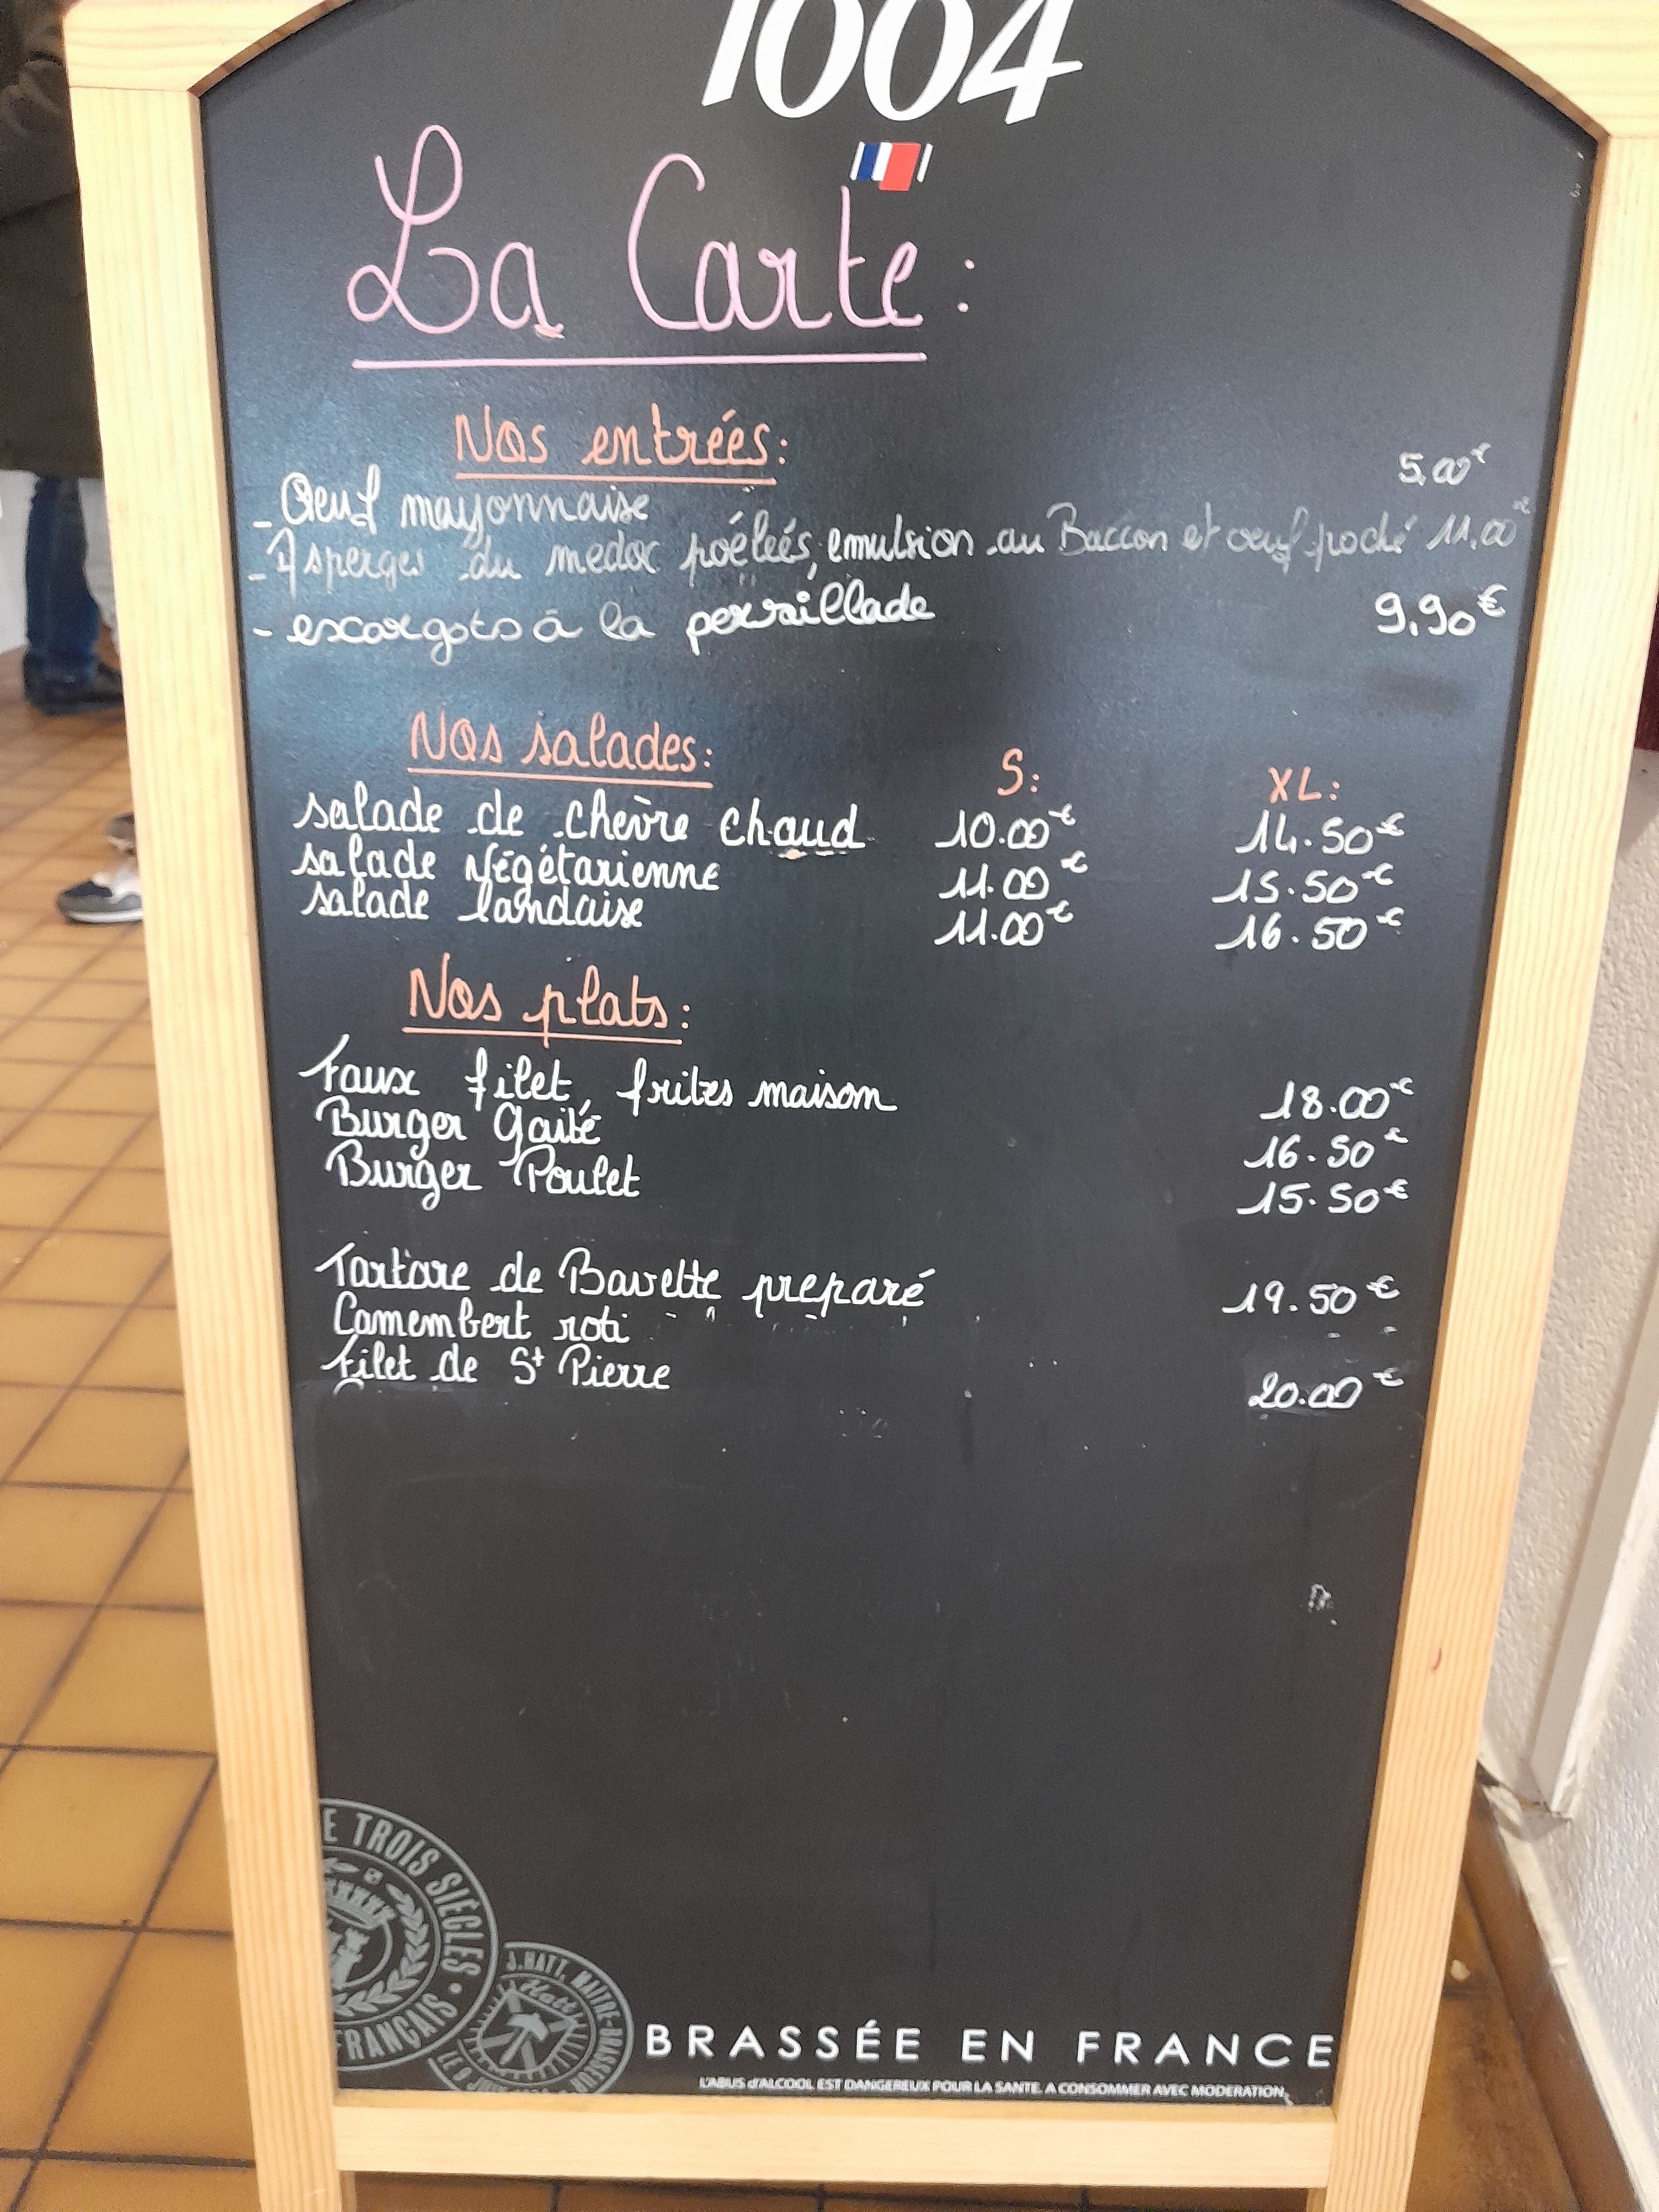 1664
La Carte:
Nos entrées:
- Oeuf mayonnaise 5,00€
- Asperges du medoc poêlées, emulsion au Baccon et oeuf poché 11,00€
- escargots à la persaillade 9,90€
Nos salades: S: XL:
salade de chèvre chaud 10.00€ 14.50€
salade Végétarienne 11.00€ 15.50€
salade landaise 11.00€ 16.50€
Nos plats:
Faux filet, frites maison 18.00€
Burger Gaité 16.50€
Burger Poulet 15.50€
Tartare de Bavette preparé 19.50€
Camembert roti
Filet de St Pierre 20.00€
E TROIS SIÈCLES •
FRANÇAIS
J.HATT, MAITRE-BRASSEUR
Hatt
BRASSÉE EN FRANCE
L'ABUS d'ALCOOL EST DANGEREUX POUR LA SANTE. A CONSOMMER AVEC MODERATION.